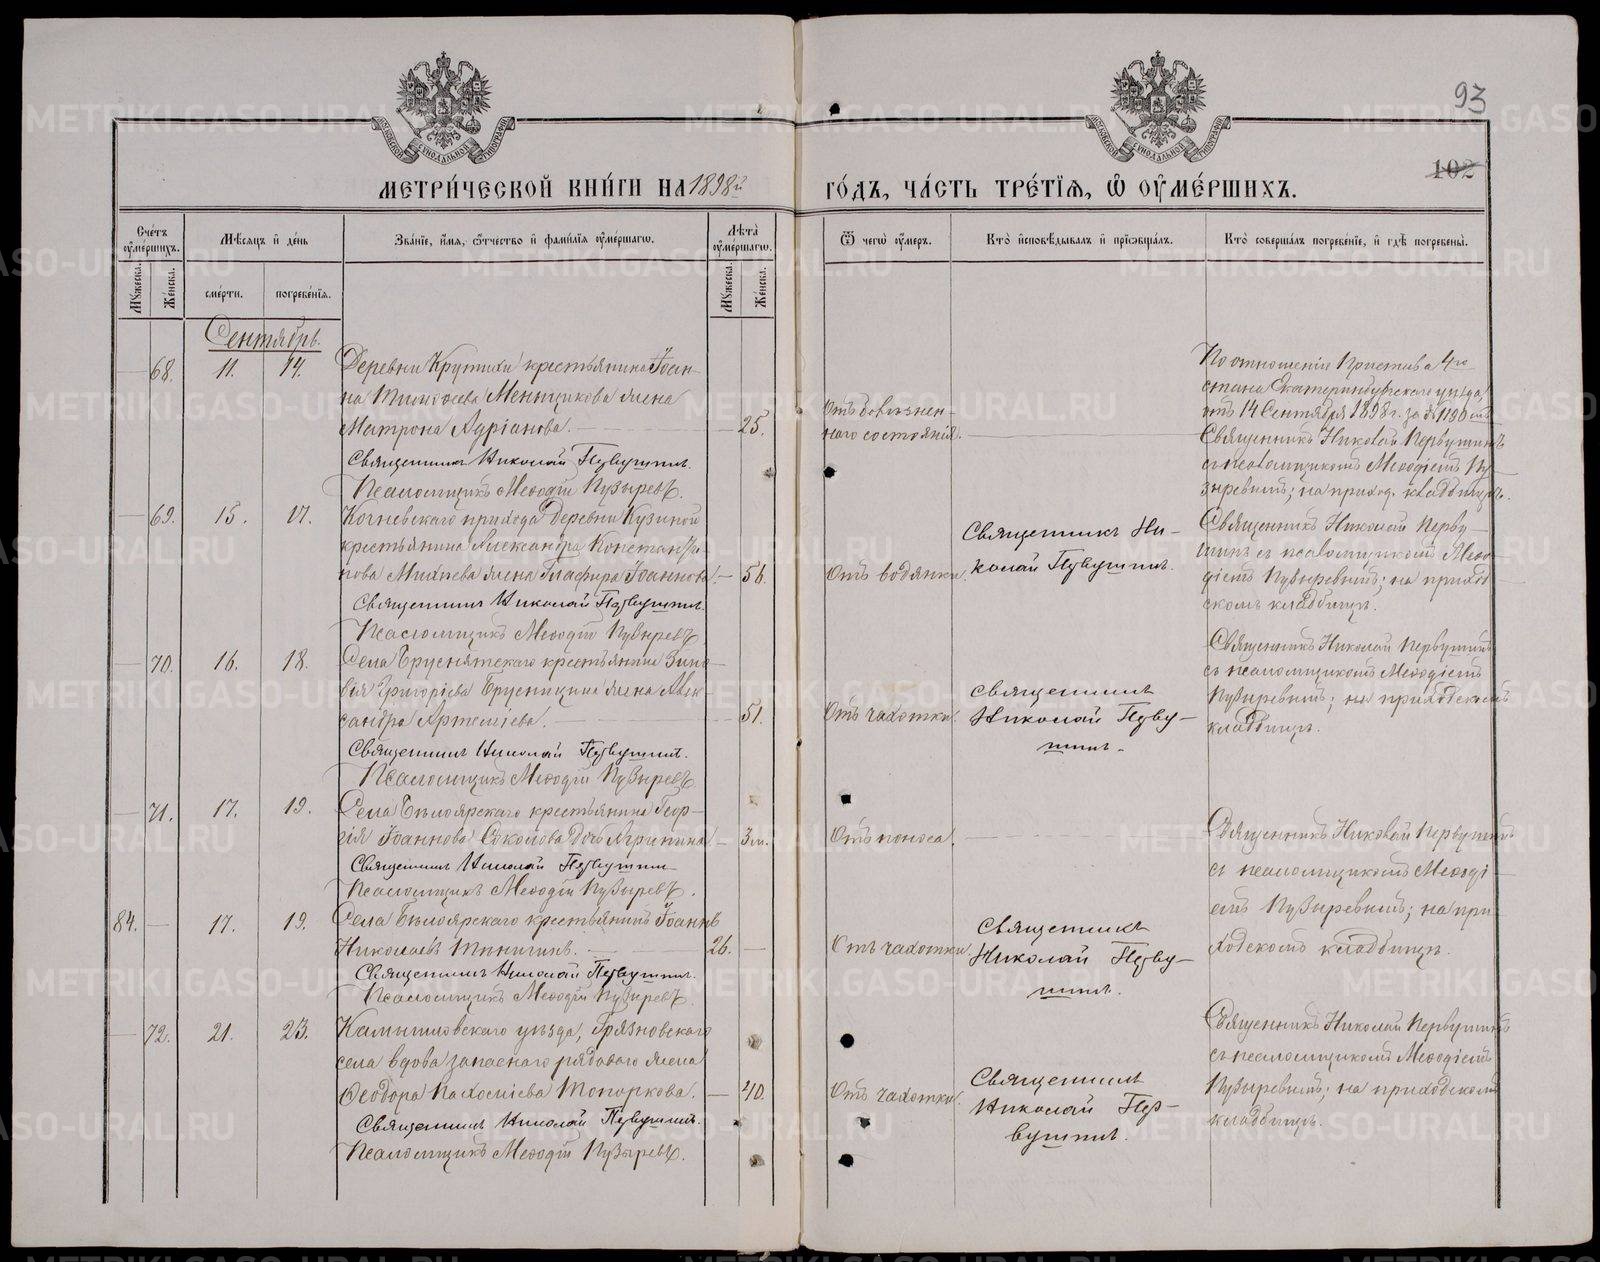 93
102
МЕТРИ́ЧЕСКОЙ КНИ́ГИ НА 1898й
ГО́ДЪ, ЧА́СТЬ ТРЕ́ТІЯ, Ѽ ОУ҆МЕ́РШИХЪ.
МОСКОВСКОЙ СѴНОДАЛЬНОЙ ТИПОГРАФІИ
МОСКОВСКОЙ СѴНОДАЛЬНОЙ ТИПОГРАФІИ
Сче́тъ оу҆ме́ршихъ.
Мꙋ́жеска.
Же́нска.
Мѣ́сяцъ и҆ де́нь
сме́рти.
погребе́нїя.
Зва́нїе, и҆́мя, ѻ҆́тчество и҆ фами́лїя оу҆ме́ршагѡ.
Лѣ́та оу҆ме́ршагѡ.
Мꙋ́жеска.
Же́нска.
Ѿ чегѡ̀ оу҆́меръ.
Кто̀ и҆сповѣ́дывалъ и҆ прїѡбща́лъ.
Кто̀ соверша́лъ погребе́нїе, и҆ гдѣ̀ погребены̀.
Сентябрь.
68. 11. 14. Деревни Крутихи крестьянина Іоан-
на Тимоѳеева Меньщикова жена
Матрона Адріанова. 25.
Священникъ Николай Первушинъ.
Псаломщикъ Меѳодій Пузыревъ.
Отъ болѣзнен-
наго состоянія.
По отношенію Пристава 4го
стана Екатеринбургскаго уѣзда
отъ 14 Сентября 1898 г. за № 1190мъ
Священникъ Николай Первушинъ
съ псаломщикомъ Меѳодіемъ Пу-
зыревымъ; на приход. кладбищѣ.
69. 15. 17. Кочневскаго прихода Деревни Кузиной
крестьянина Александра Константи-
нова Михѣева жена Глафира Іоаннова. 56.
Священникъ Николай Первушинъ.
Псаломщикъ Меѳодій Пузыревъ.
Отъ водянки.
Священникъ Ни-
колай Первушинъ.
Священникъ Николай Перву-
шинъ съ псаломщикомъ Меѳо-
діемъ Пузыревымъ; на приход-
скомъ кладбищѣ.
70. 16. 18. Села Бруснятскаго крестьянина Зино-
вія Григоріева Брусницина жена Алек-
сандра Артемьева. 51.
Священникъ Николай Первушинъ.
Псаломщикъ Меѳодій Пузыревъ
Отъ чахотки.
Священникъ
Николай Перву-
шинъ.
Священникъ Николай Первушинъ
съ псаломщикомъ Меѳодіемъ
Пузыревымъ; на приходскомъ
кладбищѣ.
71. 17. 19. Села Бѣлоярскаго крестьянина Геор-
гія Іоаннова Соколова дочь Агрипина. 3 м.
Священникъ Николай Первушинъ
Псаломщикъ Меѳодій Пузыревъ.
Отъ поноса.
Священникъ Николай Первушинъ
съ псаломщикомъ Меѳоді-
емъ Пузыревымъ; на при-
ходскомъ кладбищѣ.
84. 17. 19. Села Бѣлоярскаго крестьянинъ Іоаннъ
Николаевъ 26.
Священникъ Николай Первушинъ.
Псаломщикъ Меѳодій Пузыревъ.
Отъ чахотки.
Священникъ
Николай Перву-
шинъ.
72. 21. 23. Камышловскаго уѣзда, Грязновскаго
села вдова запаснаго рядоваго жена
Ѳеодора Топоркова. 40.
Священникъ Николай Первушинъ.
Псаломщикъ Меѳодій Пузыревъ.
Отъ чахотки.
Священникъ
Николай Пер-
вушинъ.
Священникъ Николай Первушинъ
съ псаломщикомъ Меѳодіемъ
Пузыревымъ; на приходскомъ
кладбищѣ.
METRIKI.GASO-URAL.RU